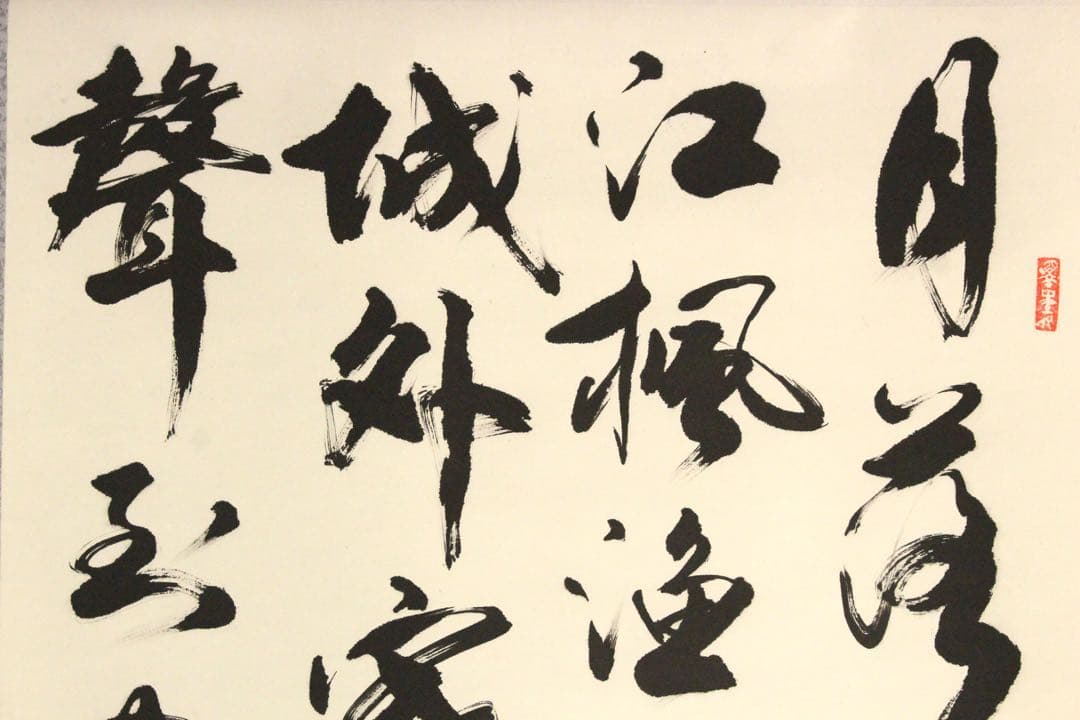 月落
江楓漁
城外寒
聲到